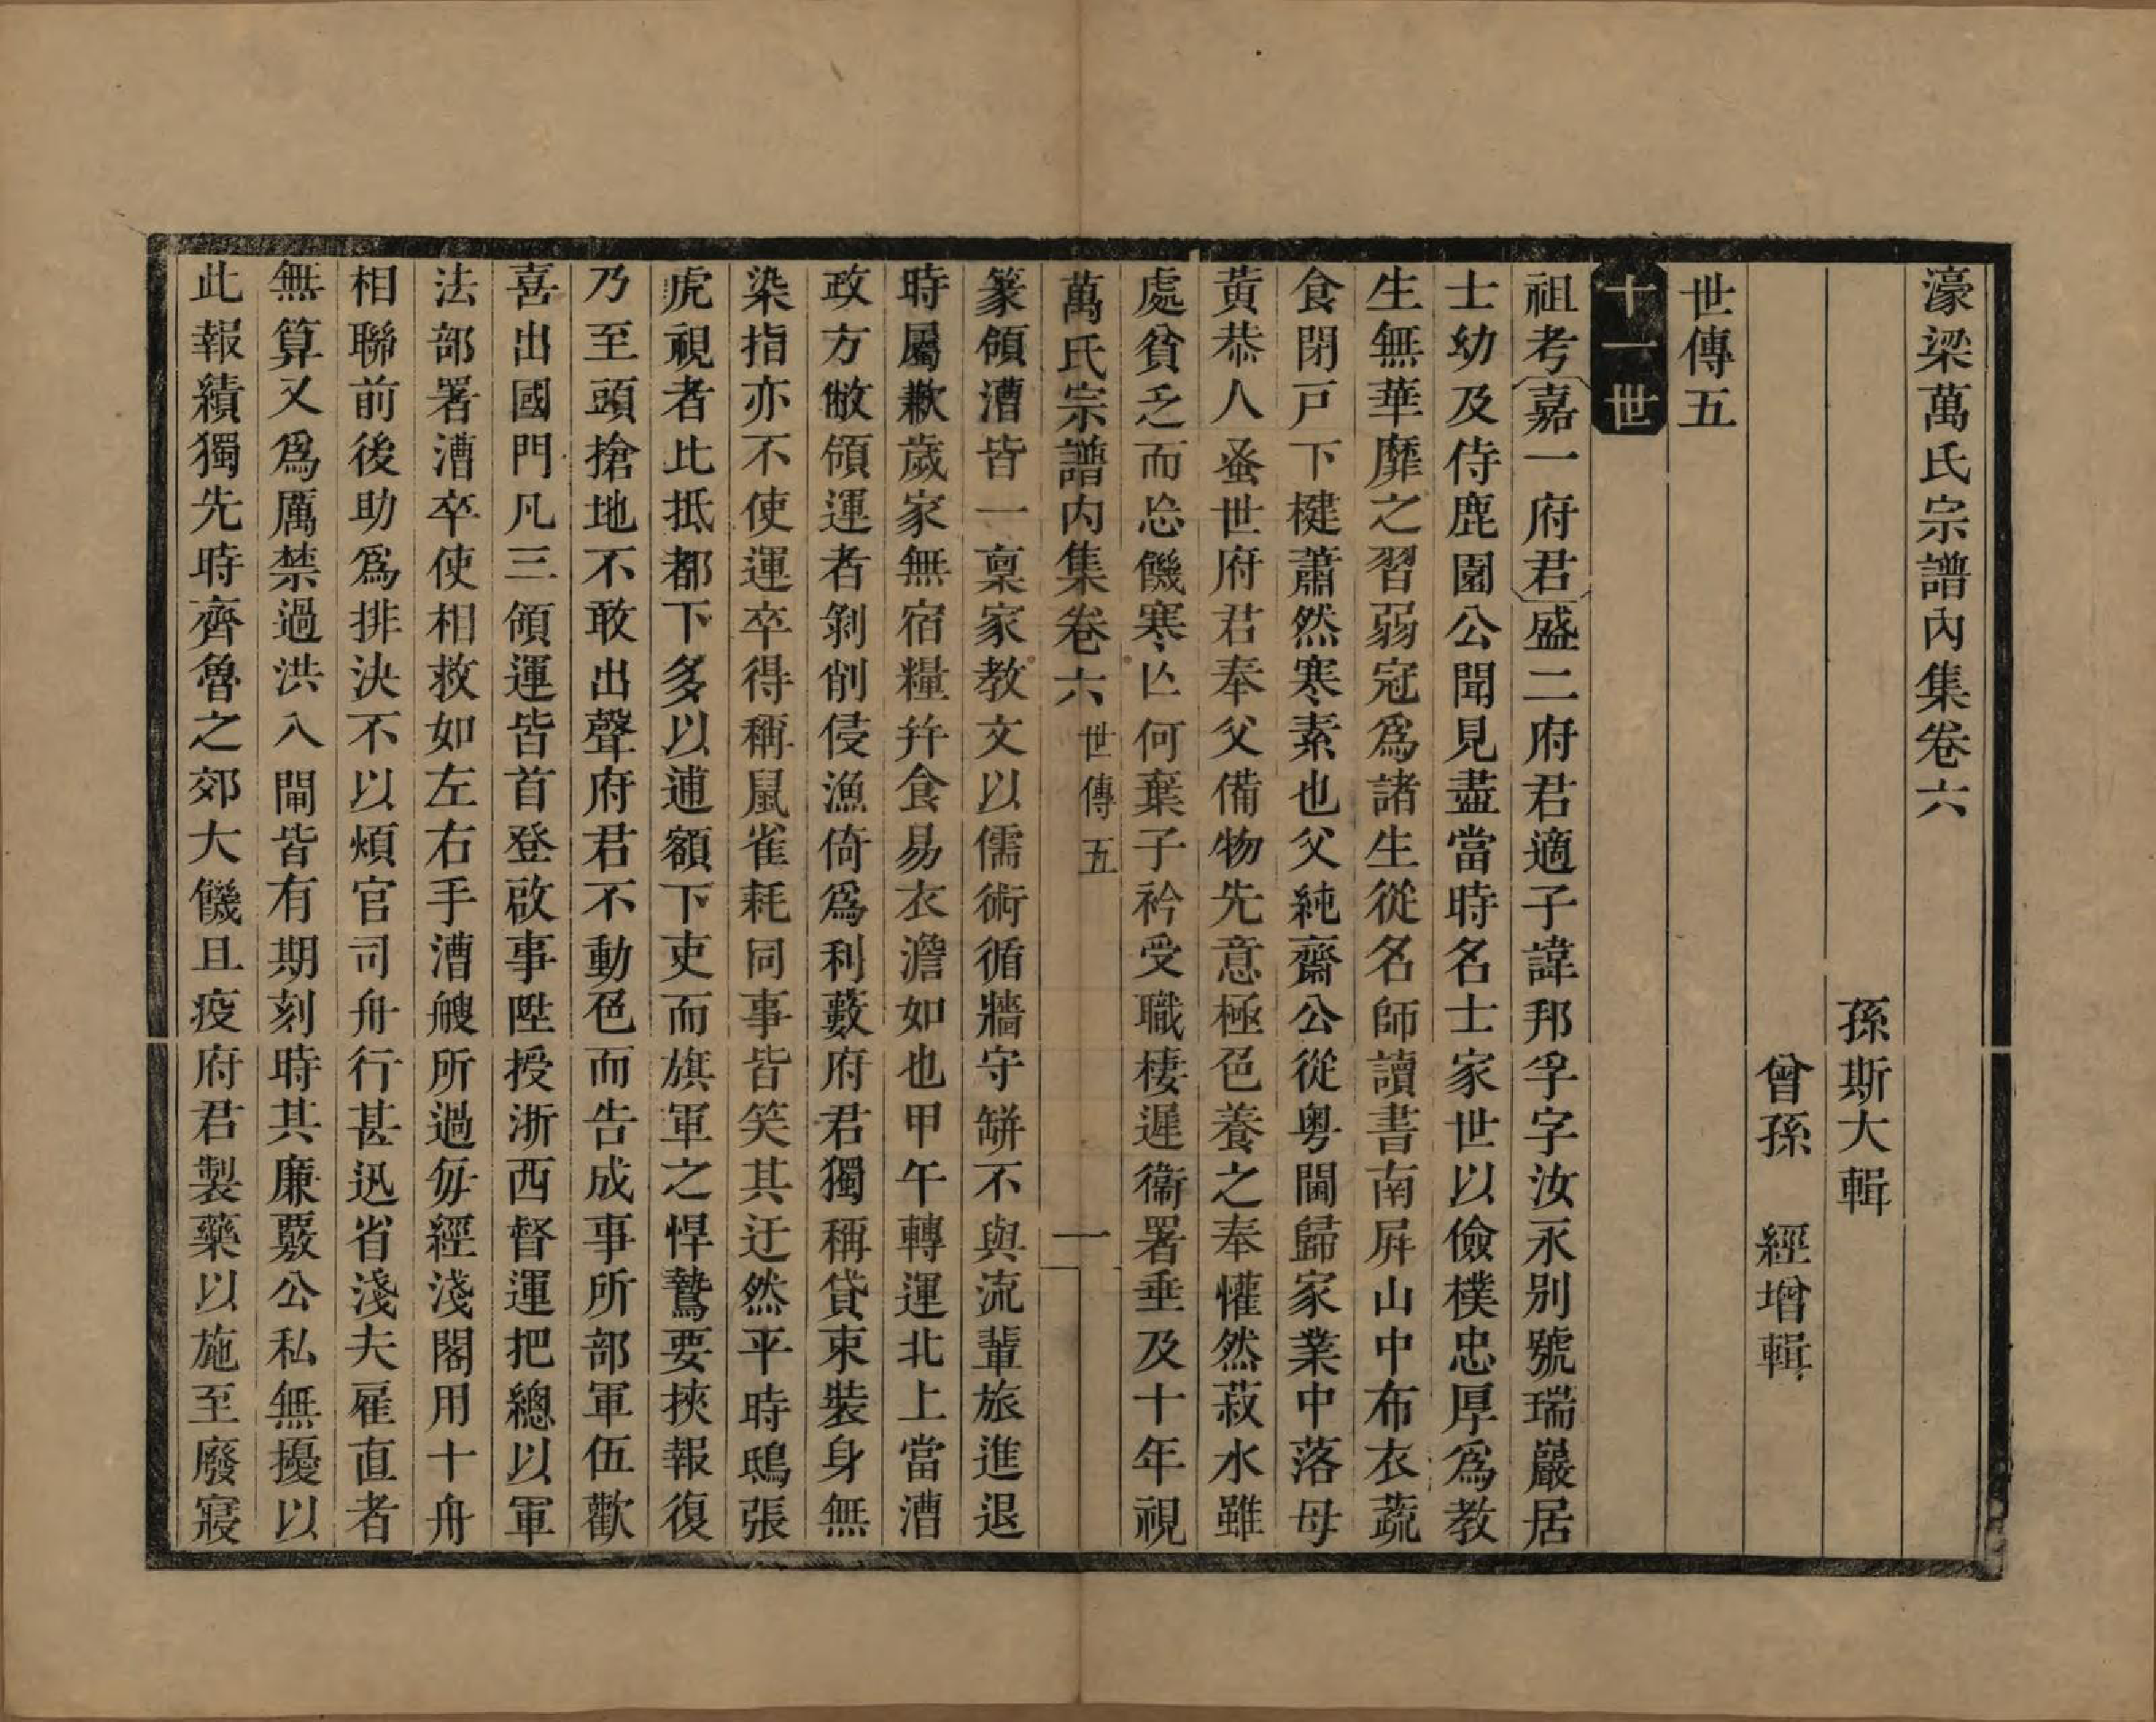 濠梁萬氏宗譜內集卷六
孫斯大輯
曾孫　經增輯
世傳五
十一世
祖考嘉一府君盛二府君適子諱邦孚字汝永別號瑞巖居
士幼及侍鹿園公聞見盡當時名士家世以儉樸忠厚爲教
生無華靡之習弱冠爲諸生從名師讀書南屛山中布衣蔬
食閉戸下楗蕭然寒素也父純齋公從粵閫歸家業中落母
黃恭人蚤世府君奉父備物先意極色養之奉懽然菽水雖
處貧乏而忘饑寒亾何棄子衿受職棲遲衞署垂及十年視
萬氏宗譜內集卷六　世傳五　一
篆領漕皆一稟家教文以儒術循牆守缾不與流輩旅進退
時屬歉歲家無宿糧幷食易衣澹如也甲午轉運北上當漕
政方敝領運者剝削侵漁倚爲利藪府君獨稱貸束裝身無
染指亦不使運卒得稱鼠雀耗同事皆笑其迂然平時鴟張
虎視者比抵都下多以逋額下吏而旗軍之悍鷙要挾報復
乃至頭搶地不敢出聲府君不動色而告成事所部軍伍歡
喜出國門凡三領運皆首登啟事陞授浙西督運把總以軍
法部署漕卒使相救如左右手漕艘所過每經淺閣用十舟
相聯前後助爲排決不以煩官司舟行甚迅省淺夫雇直者
無算又爲厲禁過洪入閘皆有期刻時其廉覈公私無擾以
此報績獨先時齊魯之郊大饑且疫府君製藥以施至廢寢